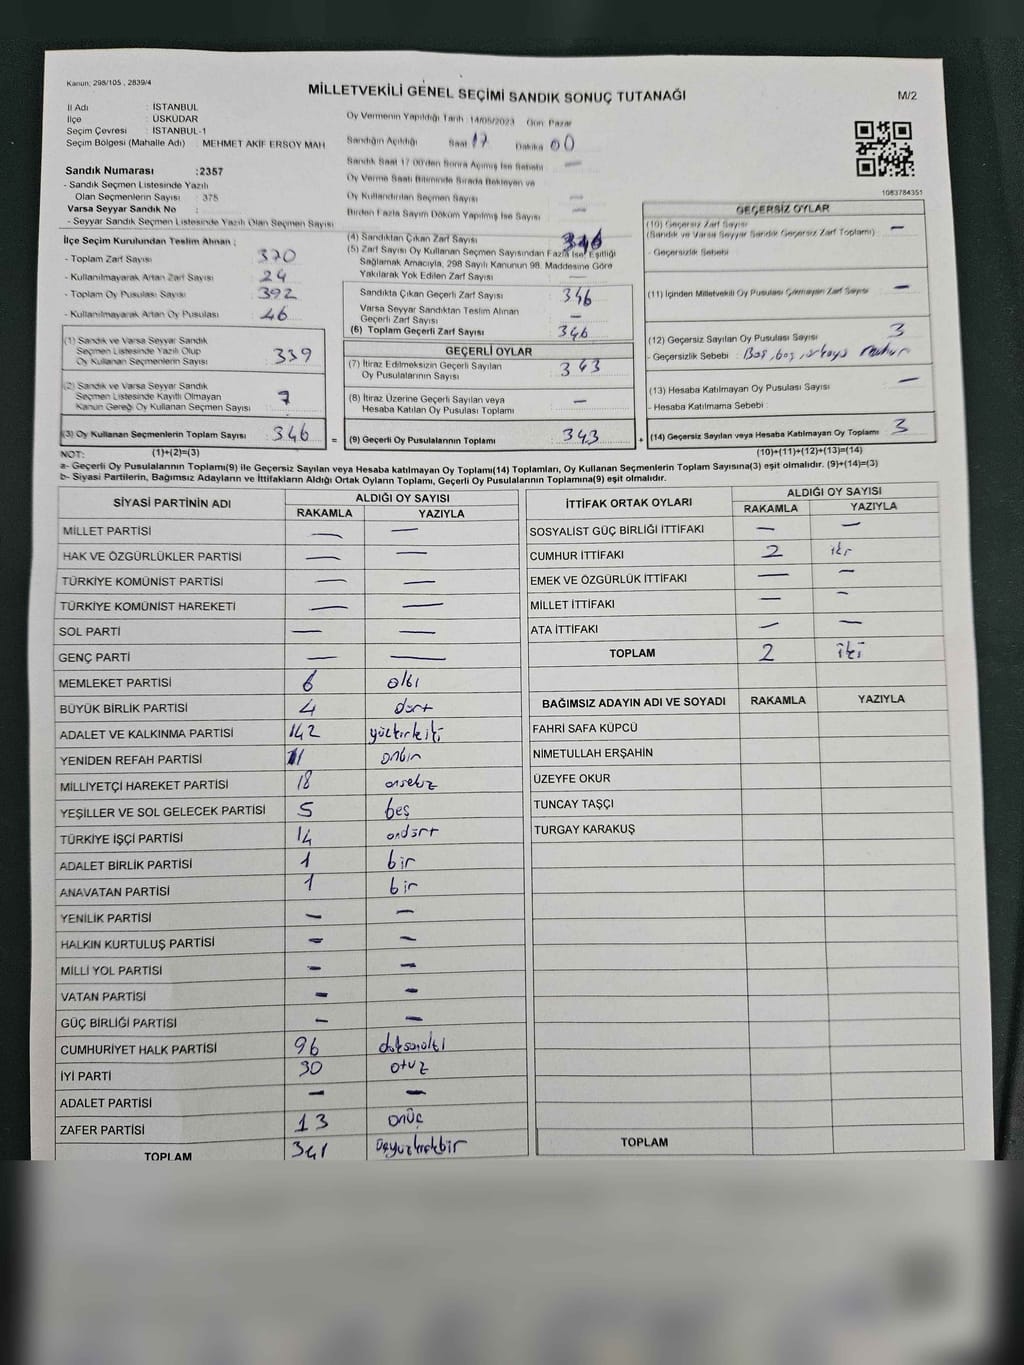 Kanun, 298/105 , 2839/4
MİLLETVEKİLİ GENEL SEÇİMİ SANDIK SONUÇ TUTANAĞI
M/2
İl Adı : İSTANBUL
İlçe : ÜSKÜDAR
Seçim Çevresi : İSTANBUL-1
Seçim Bölgesi (Mahalle Adı) : MEHMET AKİF ERSOY MAH
Sandık Numarası :2357
- Sandık Seçmen Listesinde Yazılı
Olan Seçmenlerin Sayısı : 375
Varsa Seyyar Sandık No :
- Seyyar Sandık Seçmen Listesinde Yazılı Olan Seçmen Sayısı
Oy Vermenin Yapıldığı Tarih 14/05/2023 Gün Pazar
Sandığın Açıldığı Saat 17 Dakika 00
Sandık Saat 17.00'den Sonra Açılmış İse Sebebi —
Oy Verme Saati Bitiminde Sırada Bekleyen ve
Oy Kullandırılan Seçmen Sayısı —
Birden Fazla Sayım Döküm Yapılmış İse Sayısı —
1083784351
İlçe Seçim Kurulundan Teslim Alınan ;
- Toplam Zarf Sayısı : 370
- Kullanılmayarak Artan Zarf Sayısı : 24
- Toplam Oy Pusulası Sayısı : 392
- Kullanılmayarak Artan Oy Pusulası : 46
(1) Sandık ve Varsa Seyyar Sandık
Seçmen Listesinde Yazılı Olup
Oy Kullanan Seçmenlerin Sayısı : 339
(2) Sandık ve Varsa Seyyar Sandık
Seçmen Listesinde Kayıtlı Olmayan
Kanun Gereği Oy Kullanan Seçmen Sayısı : 7
(3) Oy Kullanan Seçmenlerin Toplam Sayısı : 346
(4) Sandıktan Çıkan Zarf Sayısı : 346
(5) Zarf Sayısı Oy Kullanan Seçmen Sayısından Fazla İse, Eşitliği
Sağlamak Amacıyla, 298 Sayılı Kanunun 98. Maddesine Göre
Yakılarak Yok Edilen Zarf Sayısı : —
Sandıkta Çıkan Geçerli Zarf Sayısı : 346
Varsa Seyyar Sandıktan Teslim Alınan
Geçerli Zarf Sayısı : —
(6) Toplam Geçerli Zarf Sayısı : 346
GEÇERLİ OYLAR
(7) İtiraz Edilmeksizin Geçerli Sayılan
Oy Pusulalarının Sayısı : 343
(8) İtiraz Üzerine Geçerli Sayılan veya
Hesaba Katılan Oy Pusulası Toplamı : —
= (9) Geçerli Oy Pusulalarının Toplamı : 343
GEÇERSİZ OYLAR
(10) Geçersiz Zarf Sayısı
(Sandık ve Varsa Seyyar Sandık Geçersiz Zarf Toplamı) : —
- Geçersizlik Sebebi :
(11) İçinden Milletvekili Oy Pusulası Çıkmayan Zarf Sayısı : —
(12) Geçersiz Sayılan Oy Pusulası Sayısı : 3
- Geçersizlik Sebebi : Boş, boş,
(13) Hesaba Katılmayan Oy Pusulası Sayısı : —
- Hesaba Katılmama Sebebi :
+ (14) Geçersiz Sayılan veya Hesaba Katılmayan Oy Toplamı : 3
NOT: (1)+(2)=(3)
(10)+(11)+(12)+(13)=(14)
a- Geçerli Oy Pusulalarının Toplamı(9) ile Geçersiz Sayılan veya Hesaba katılmayan Oy Toplamı(14) Toplamları, Oy Kullanan Seçmenlerin Toplam Sayısına(3) eşit olmalıdır. (9)+(14)=(3)
b- Siyasi Partilerin, Bağımsız Adayların ve İttifakların Aldığı Ortak Oyların Toplamı, Geçerli Oy Pusulalarının Toplamına(9) eşit olmalıdır.
SİYASİ PARTİNİN ADI ALDIĞI OY SAYISI
RAKAMLA YAZIYLA
MİLLET PARTİSİ — —
HAK VE ÖZGÜRLÜKLER PARTİSİ — —
TÜRKİYE KOMÜNİST PARTİSİ — —
TÜRKİYE KOMÜNİST HAREKETİ — —
SOL PARTİ — —
GENÇ PARTİ — —
MEMLEKET PARTİSİ 6 altı
BÜYÜK BİRLİK PARTİSİ 4 dört
ADALET VE KALKINMA PARTİSİ 142 yüzkırkiki
YENİDEN REFAH PARTİSİ 11 onbir
MİLLİYETÇİ HAREKET PARTİSİ 18 onsekiz
YEŞİLLER VE SOL GELECEK PARTİSİ 5 beş
TÜRKİYE İŞÇİ PARTİSİ 14 ondört
ADALET BİRLİK PARTİSİ 1 bir
ANAVATAN PARTİSİ 1 bir
YENİLİK PARTİSİ — —
HALKIN KURTULUŞ PARTİSİ — —
MİLLİ YOL PARTİSİ — —
VATAN PARTİSİ — —
GÜÇ BİRLİĞİ PARTİSİ — —
CUMHURİYET HALK PARTİSİ 96 doksanaltı
İYİ PARTİ 30 otuz
ADALET PARTİSİ — —
ZAFER PARTİSİ 13 onüç
TOPLAM 341 üçyüzkırkbir
İTTİFAK ORTAK OYLARI ALDIĞI OY SAYISI
RAKAMLA YAZIYLA
SOSYALİST GÜÇ BİRLİĞİ İTTİFAKI — —
CUMHUR İTTİFAKI 2 iki
EMEK VE ÖZGÜRLÜK İTTİFAKI — —
MİLLET İTTİFAKI — —
ATA İTTİFAKI — —
TOPLAM 2 iki
BAĞIMSIZ ADAYIN ADI VE SOYADI RAKAMLA YAZIYLA
FAHRİ SAFA KÜPCÜ
NİMETULLAH ERŞAHİN
ÜZEYFE OKUR
TUNCAY TAŞÇI
TURGAY KARAKUŞ
TOPLAM